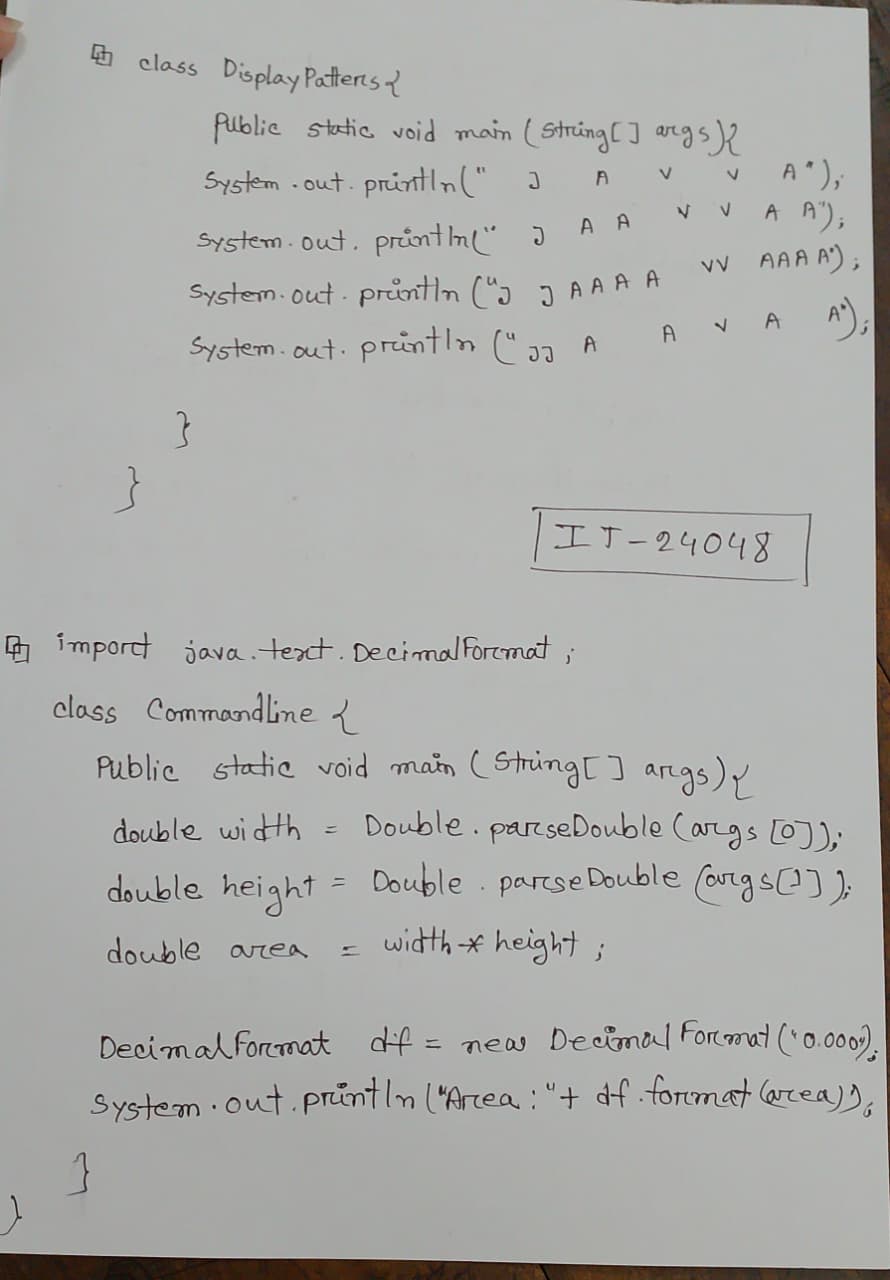 class DisplayPatterns{
Public static void main (String[] args){
System.out.println("    J     A     V     V     A");
System.out.println("    J    A  A    V   V    A  A");
System.out.println("J   J  A A A A    VV   AAA A");
System.out.println(" JJ   A      A    V    A      A");
}
}
IT-24048
import java.text.DecimalFormat;
class Commandline {
Public static void main (String[] args){
double width = Double.parseDouble(args[0]);
double height = Double.parseDouble(args[1]);
double area = width * height;
DecimalFormat df = new DecimalFormat("0.000");
System.out.println("Area:"+ df.format(area));
}
}